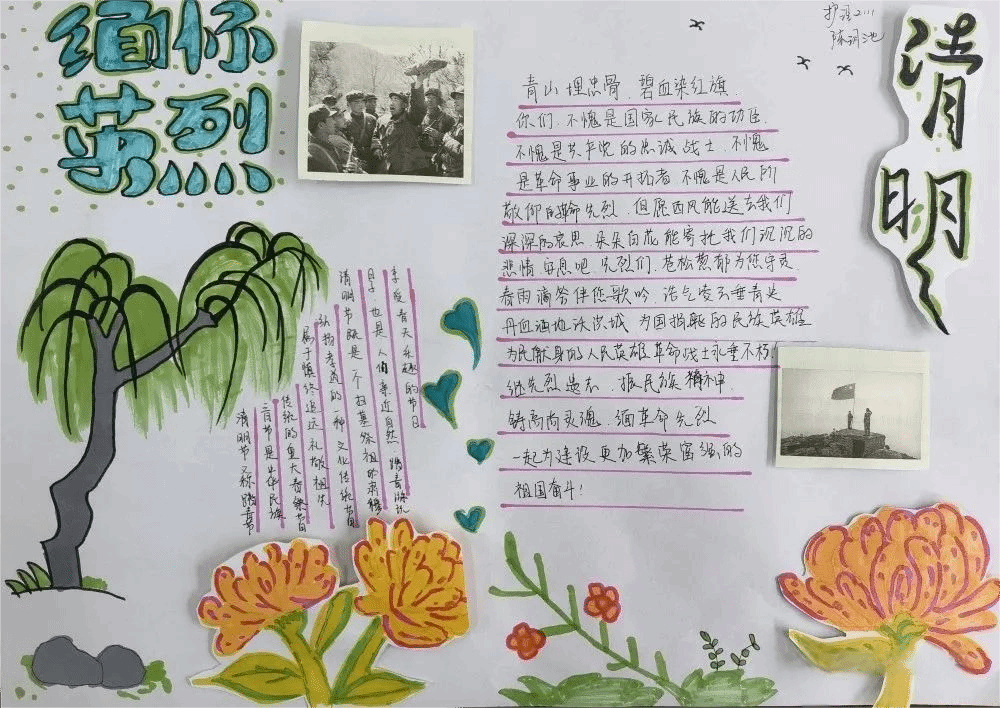 缅怀
英烈
护理2111
清明
青山埋忠骨,碧血染红旗.
你们,不愧是国家民族的功臣.
不愧是共产党的忠诚战士,不愧
是革命事业的开拓者,不愧是人民所
敬仰的革命先烈.但愿西风能送去我们
深深的哀思,朵朵白花能寄托我们沉沉的
悲情,安息吧,先烈们,苍松葱郁为您守灵
春雨滴答伴您歌吟,浩气凌云垂青史
丹血洒地沃洪城,为国捐躯的民族英雄
为民献身的人民英雄,革命战士永垂不朽.
继先烈遗志,振民族精神.
铸高尚灵魂,缅革命先烈
一起为建设更加繁荣富强的
祖国奋斗!
清明节又称踏青节
三月节是中华民族
传统的重大春祭节日
属于慎终追远礼敬祖先
弘扬孝道的一种文化传统节日
清明节既是一个扫墓祭祖的肃穆
日子,也是人们亲近自然,踏青游玩
享受春天乐趣的节日